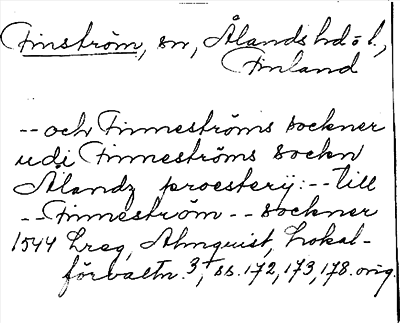 Finström, sn, Ålands hd o l.,
Finland
-- och Finneströms sockner
udi Finneströms sockn
Ålandz proesterij: -- till
-- Finneström -- sockner
1544 hreg, Almquist, Lokal-
förvaltn. 3, ss. 172, 173, 178. orig.